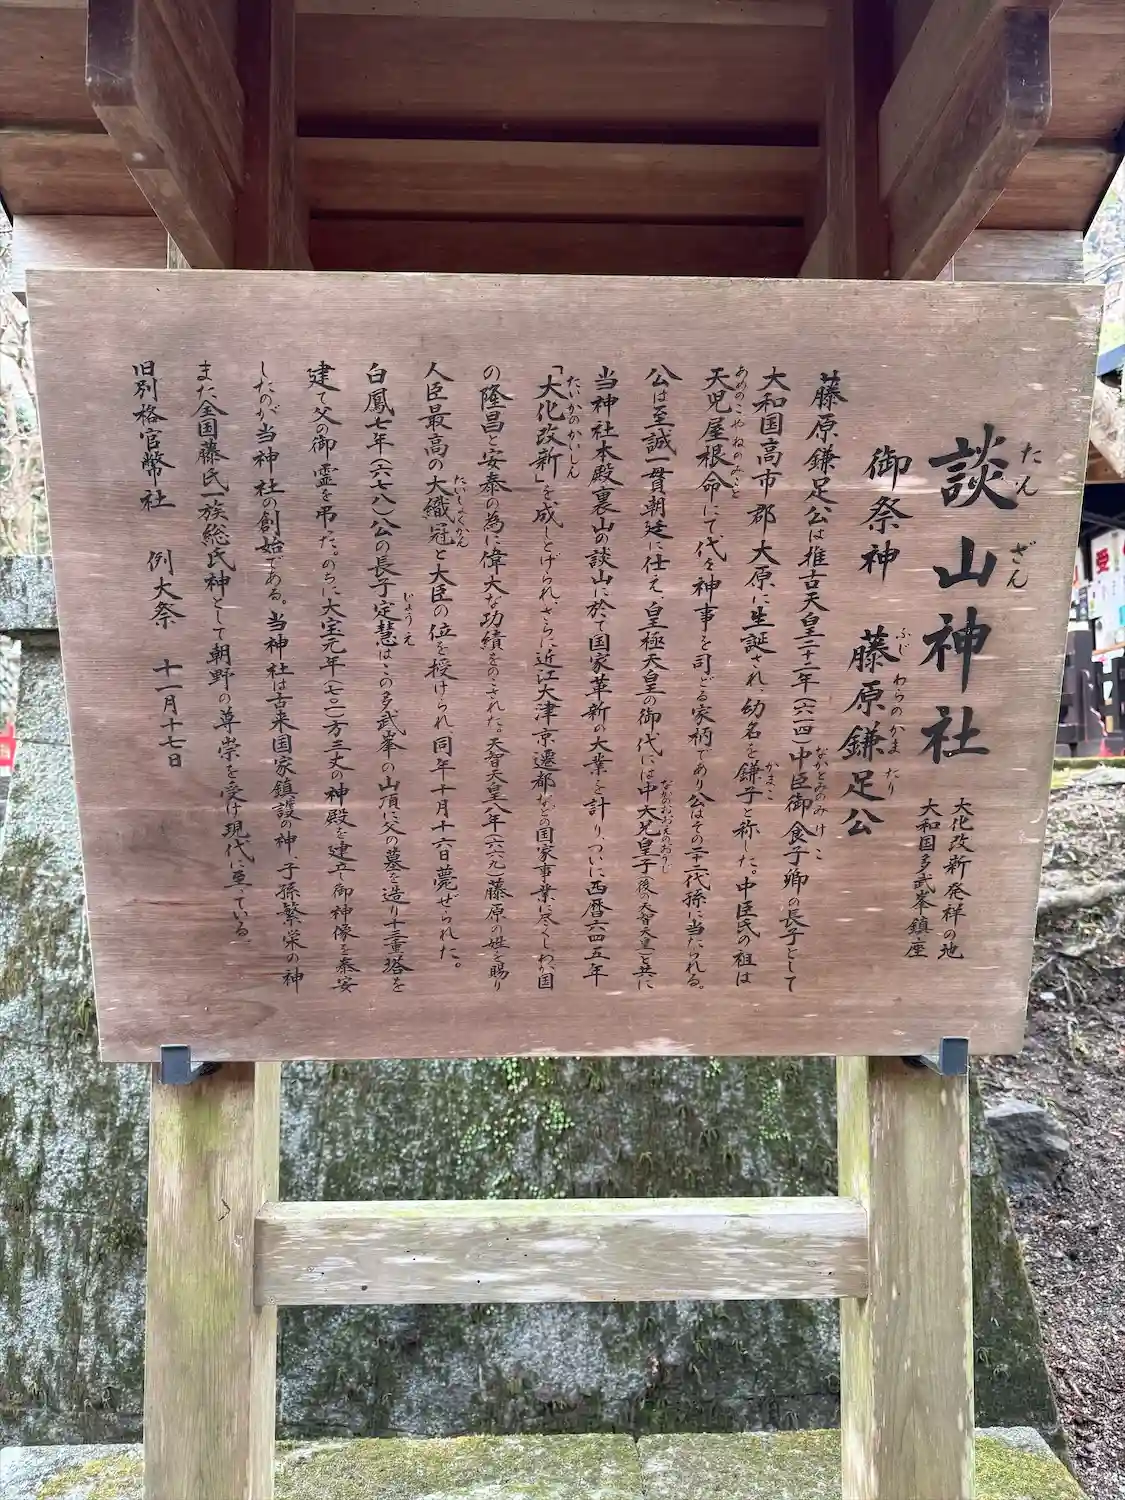 談山神社
たん ざん
大化改新発祥の地
大和国多武峯鎮座
御祭神 藤原鎌足公
ふじ わらのかま たり
藤原鎌足公は推古天皇二十二年(六一四)中臣御食子卿の長子として
なかとみのみけ こ
大和国高市郡大原に生誕され、幼名を鎌子と称した。中臣氏の祖は
かまこ
天児屋根命にて代々神事を司どる家柄であり公はその二十二代孫に当たられる。
あめのこやねのみこと
公は至誠一貫朝廷に仕え、皇極天皇の御代には中大兄皇子(後の天智天皇)と共に
なかのおおえのおうじ
当神社本殿裏山の談山に於て国家革新の大業を計り、ついに西暦六四五年
「大化改新」を成しとげられ、さらに近江大津京遷都などの国家事業につくしわが国
たいかのかいしん
の隆昌と安泰の為に偉大な功績をのこされた。天智天皇八年(六六九)藤原の姓を賜り
人臣最高の大織冠と大臣の位を授けられ、同年十月十六日薨ぜられた。
たいしょくかん
白鳳七年(六七八)公の長子定慧はこの多武峯の山頂に父の墓を造り十三重塔を
じょうえ
建て父の御霊を弔った。のちに大宝元年(七〇一)方三丈の神殿を建て、御神像を奉安
したのが当神社の創始である。当神社は古来国家鎮護の神、子孫繁栄の神
また全国藤氏一族総氏神として朝野の尊崇を受け現代に至っている。
旧別格官幣社 例大祭 十一月十七日
受